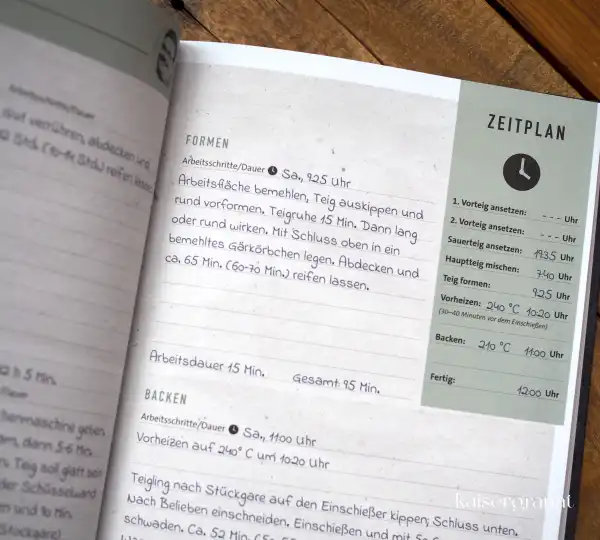 auf verrühren, abdecken und
Std.) reifen lassen.
h 5 Min.
dann 5-6 Min.
Teig soll glatt sein
der Schüsselwand
und 10 Min.
FORMEN
Arbeitsschritte/Dauer Sa., 925 Uhr
Arbeitsfläche bemehlen, Teig auskippen und
rund vorformen. Teigruhe 15 Min. Dann lang
oder rund wirken. Mit Schluss oben in ein
bemehltes Gärkörbchen legen. Abdecken und
ca. 65 Min. (60-70 Min.) reifen lassen.
Arbeitsdauer 15 Min. Gesamt 95 Min.
BACKEN
Arbeitsschritte/Dauer Sa., 1100 Uhr
Vorheizen auf 240° C um 1020 Uhr
Teigling nach Stückgare auf den Einschießer kippen, Schluss unten.
Nach Belieben einschneiden. Einschießen und mit
schwaden. Ca. 52 Min.
ZEITPLAN
1. Vorteig ansetzen: --- Uhr
2. Vorteig ansetzen: --- Uhr
Sauerteig ansetzen: 1935 Uhr
Hauptteig mischen: 740 Uhr
Teig formen: 925 Uhr
Vorheizen: 240 °C 1020 Uhr
(30–40 Minuten vor dem Einschießen)
Backen: 210 °C 1100 Uhr
Fertig: 1200 Uhr
kaisergranat